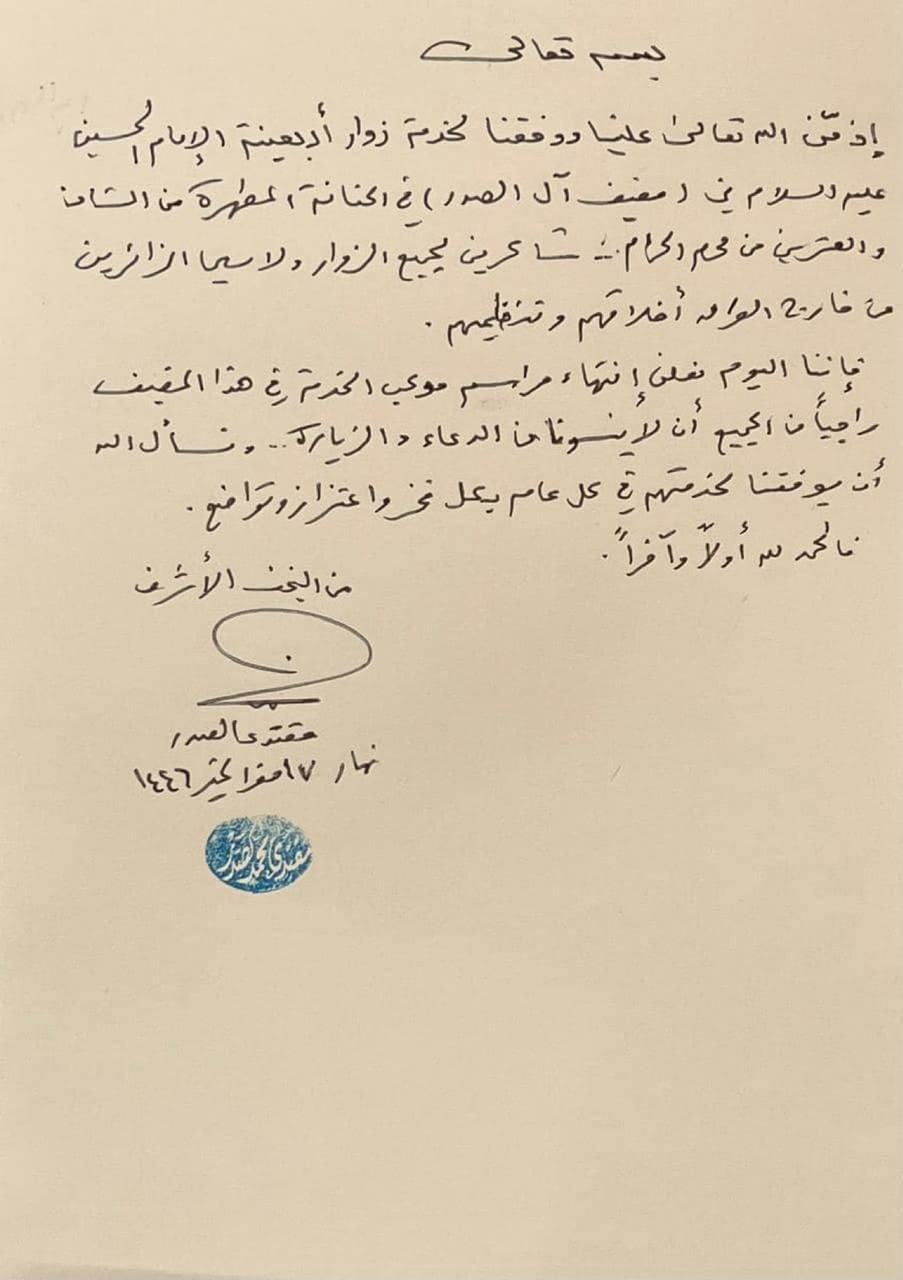 بسمه تعالى
إذ منّ الله تعالى علينا ووفقنا لخدمة زوار أربعينة الإمام الحسين
عليه السلام في (مضيف آل الصدر) في الحنانة المطهرة من الثامن
والعشرين من محرم الحرام... شاكرين لجميع الزوار ولا سيما الزائرين
من خارج العراق أخلاقهم وتنظيمهم.
فإننا اليوم نعلن إنتهاء مراسم موكب الخدمة في هذا المضيف
راجياً من الجميع أن لا ينسونا من الدعاء والزيارة... ونسأل الله
أن يوفقنا لخدمتهم في كل عام بكل فخر واعتزاز وتواضع.
فالحمد لله أولاً وآخراً.
من النجف الأشرف
مقتدى الصدر
نهار ١٧ صفر الخير ١٤٤٦
مقتدى محمد الصدر